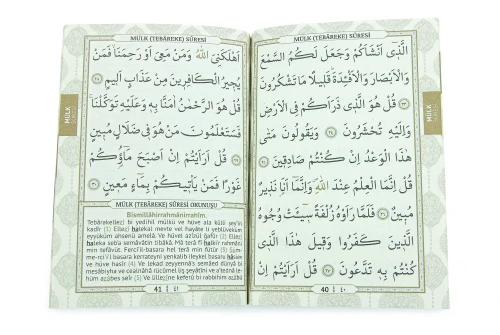 MÜLK (TEBÂREKE) SÛRESİ
الَّذِى اَنْشَاَكُمْ وَجَعَلَ لَكُمُ السَّمْعَ
وَالْاَبْصَارَ وَالْاَفْئِدَةَ قَلِيلًا مَا تَشْكُرُونَ
﴿٢٣﴾ قُلْ هُوَ الَّذِى ذَرَاَكُمْ فِى الْاَرْضِ
وَاِلَيْهِ تُحْشَرُونَ ﴿٢٤﴾ وَيَقُولُونَ مَتٰى
هٰذَا الْوَعْدُ اِنْ كُنْتُمْ صَادِقِينَ ﴿٢٥﴾
قُلْ اِنَّمَا الْعِلْمُ عِنْدَ اللّٰهِ وَاِنَّمَا اَنَا نَذِيرٌ
مُبِينٌ ﴿٢٦﴾ فَلَمَّا رَاَوْهُ زُلْفَةً سِيئَتْ وُجُوهُ
الَّذِينَ كَفَرُوا وَقِيلَ هٰذَا الَّذِى
كُنْتُمْ بِهِ تَدَّعُونَ ﴿٢٧﴾ قُلْ اَرَاَيْتُمْ اِنْ
40 ٤٠
MÜLK
MÜLK (TEBÂREKE) SÛRESİ
اَهْلَكَنِىَ اللّٰهُ وَمَنْ مَعِىَ اَوْ رَحِمَنَا فَمَنْ
يُجِيرُ الْكَافِرِينَ مِنْ عَذَابٍ اَلِيمٍ ﴿٢٨﴾
قُلْ هُوَ الرَّحْمٰنُ اٰمَنَّا بِهِ وَعَلَيْهِ تَوَكَّلْنَا
فَسَتَعْلَمُونَ مَنْ هُوَ فِى ضَلَالٍ مُبِينٍ
﴿٢٩﴾ قُلْ اَرَاَيْتُمْ اِنْ اَصْبَحَ مَاؤُكُمْ
غَوْرًا فَمَنْ يَاْتِيكُمْ بِمَاءٍ مَعِينٍ ﴿٣٠﴾
MÜLK (TEBÂREKE) SÛRESİ OKUNUŞU
Bismillâhirrahmânirrahîm.
Tebârekellezî bi yedihil mülkü ve hüve alâ külli şey'in
kadîr (1) Ellezî halekal mevte vel hayâte li yeblüveküm
eyyüküm ahsenü amelâ. Ve hüvel azîzül ğafûr (2) Ellezî
haleka seb'a semâvâtin tibâkâ. Mâ terâ fî halkir rahmâni
min tefâvüt. Ferci'il-basara hel terâ min fütûr (3) Süm-
me-rci'il basara kerrateyni yenkalib ileykel basaru hâsien
ve hüve hasîr (4) Ve lekad zeyyennâs semâed dünyâ bi
mesâbîyha ve cealnâhâ rücûmel liş şeyâtîni ve a'tednâ le-
hüm azâbes seîr (5) Ve lillezîne keferû bi rabbihim azâbü
41 ٤١
MÜLK